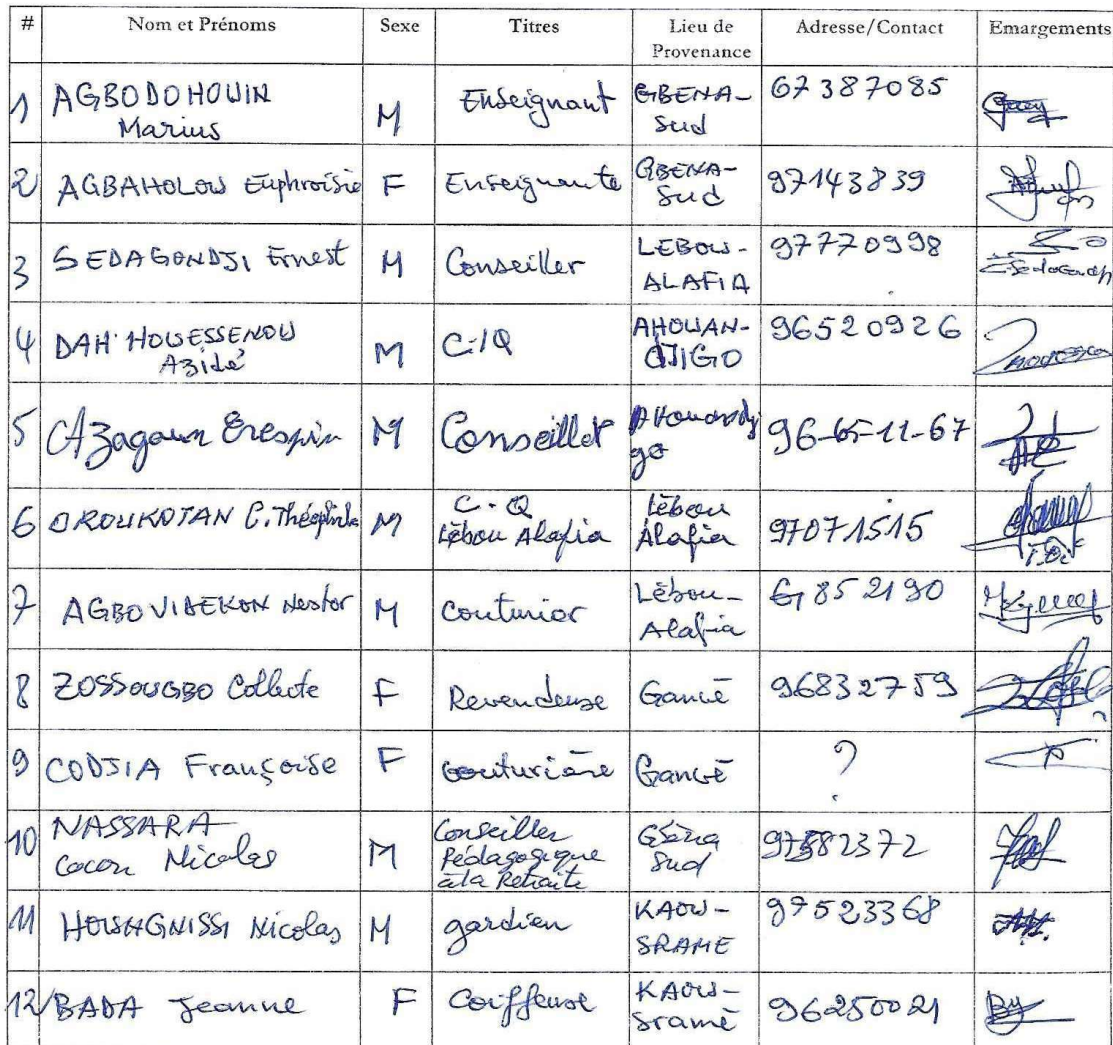 # Nom et Prénoms Sexe Titres Lieu de Provenance Adresse/Contact Emargements
1 AGBODOHOUIN Marius M Enseignant GBENA-Sud 67387085
2 AGBAHOLOU Euphroisie F Enseignante GBENA-Sud 97143839
3 SEDAGONDJI Ernest M Conseiller LEBOU-ALAFIA 97770998
4 DAH HOUESSENOU Azidé M C.Q AHOUAN-DJIGO 96520926
5 Azagoun Crespin M Conseiller 96-65-11-67
6 OROUKOTAN C. M C.Q Lèbou Alafia Lèbou Alafia 97071515
7 AGBOVIDEKON Nestor M Couturier Lèbou-Alafia
8 ZOSSOUGBO Collecte F Revendeuse Gancé 96832759
9 CODJIA Françoise F couturière Gancé ?
10 NASSARA Cocou Nicolas M Conseiller Pédagogique à la Retraite Gbèna Sud
11 HOUAGNISSI Nicolas M gardien KAOU-SRAME 97523368
12 BADA Jeanne F Coiffeuse KAOU-sramè 96250021